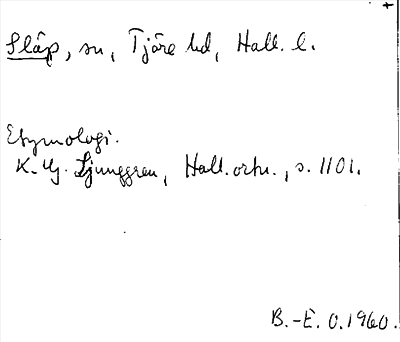 +
Slåp, sn, Tjäre hd, Hall. l.
Etymologi.
K. G. Ljunggren, Hall. ortn., s. 1101.
B.-E. O. 1960.